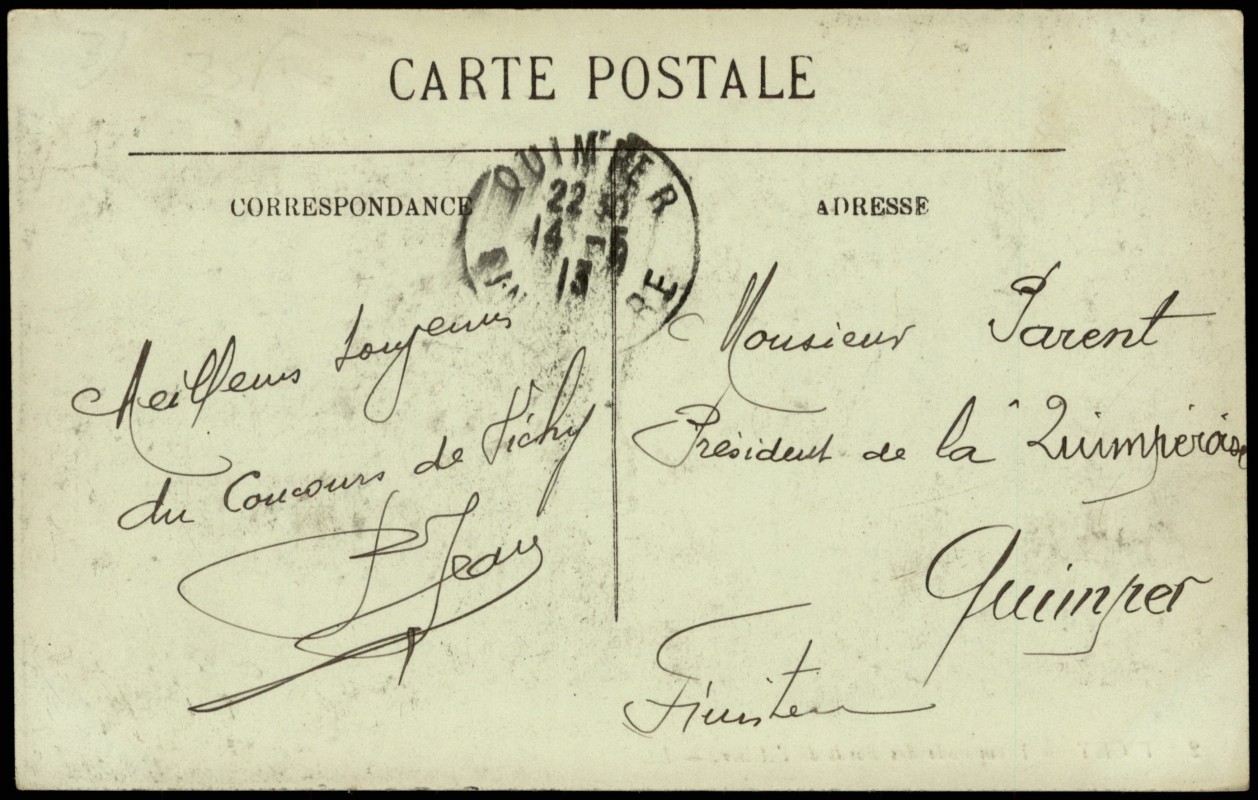 CARTE POSTALE
CORRESPONDANCE
ADRESSE
QUIMPER
22
14 -5
13
RE
Meilleurs
du Concours de Vichy
Jean
Monsieur Parent
Président de la Quimpéroise
Quimper
Finistère